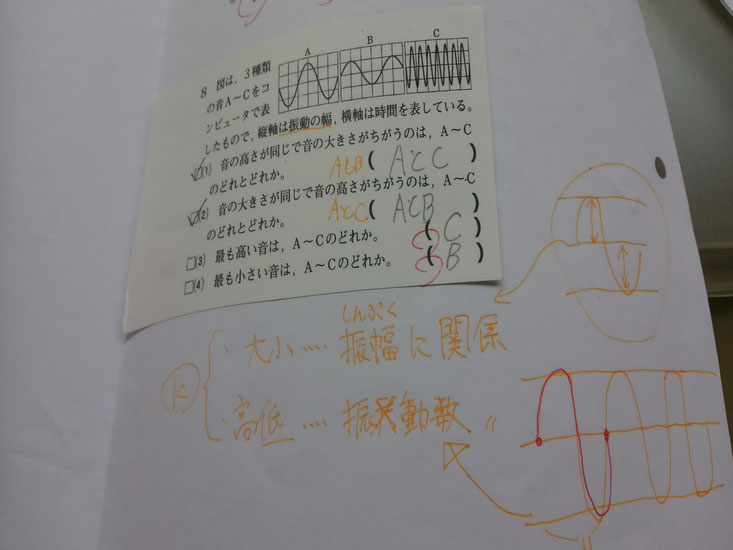 A B C
8 図は,3種類
の音A〜Cをコ
ンピュータで表
したもので,縦軸は振動の幅,横軸は時間を表している。
□(1) 音の高さが同じで音の大きさがちがうのは,A〜C
のどれとどれか。 AとB ( AとC )
□(2) 音の大きさが同じで音の高さがちがうのは,A〜C
のどれとどれか。 AとC ( AとB )
□(3) 最も高い音は,A〜Cのどれか。 ( C )
□(4) 最も小さい音は,A〜Cのどれか。 ( B )
しんぷく
大小…. 振幅に関係
高低…. 振動数 〃